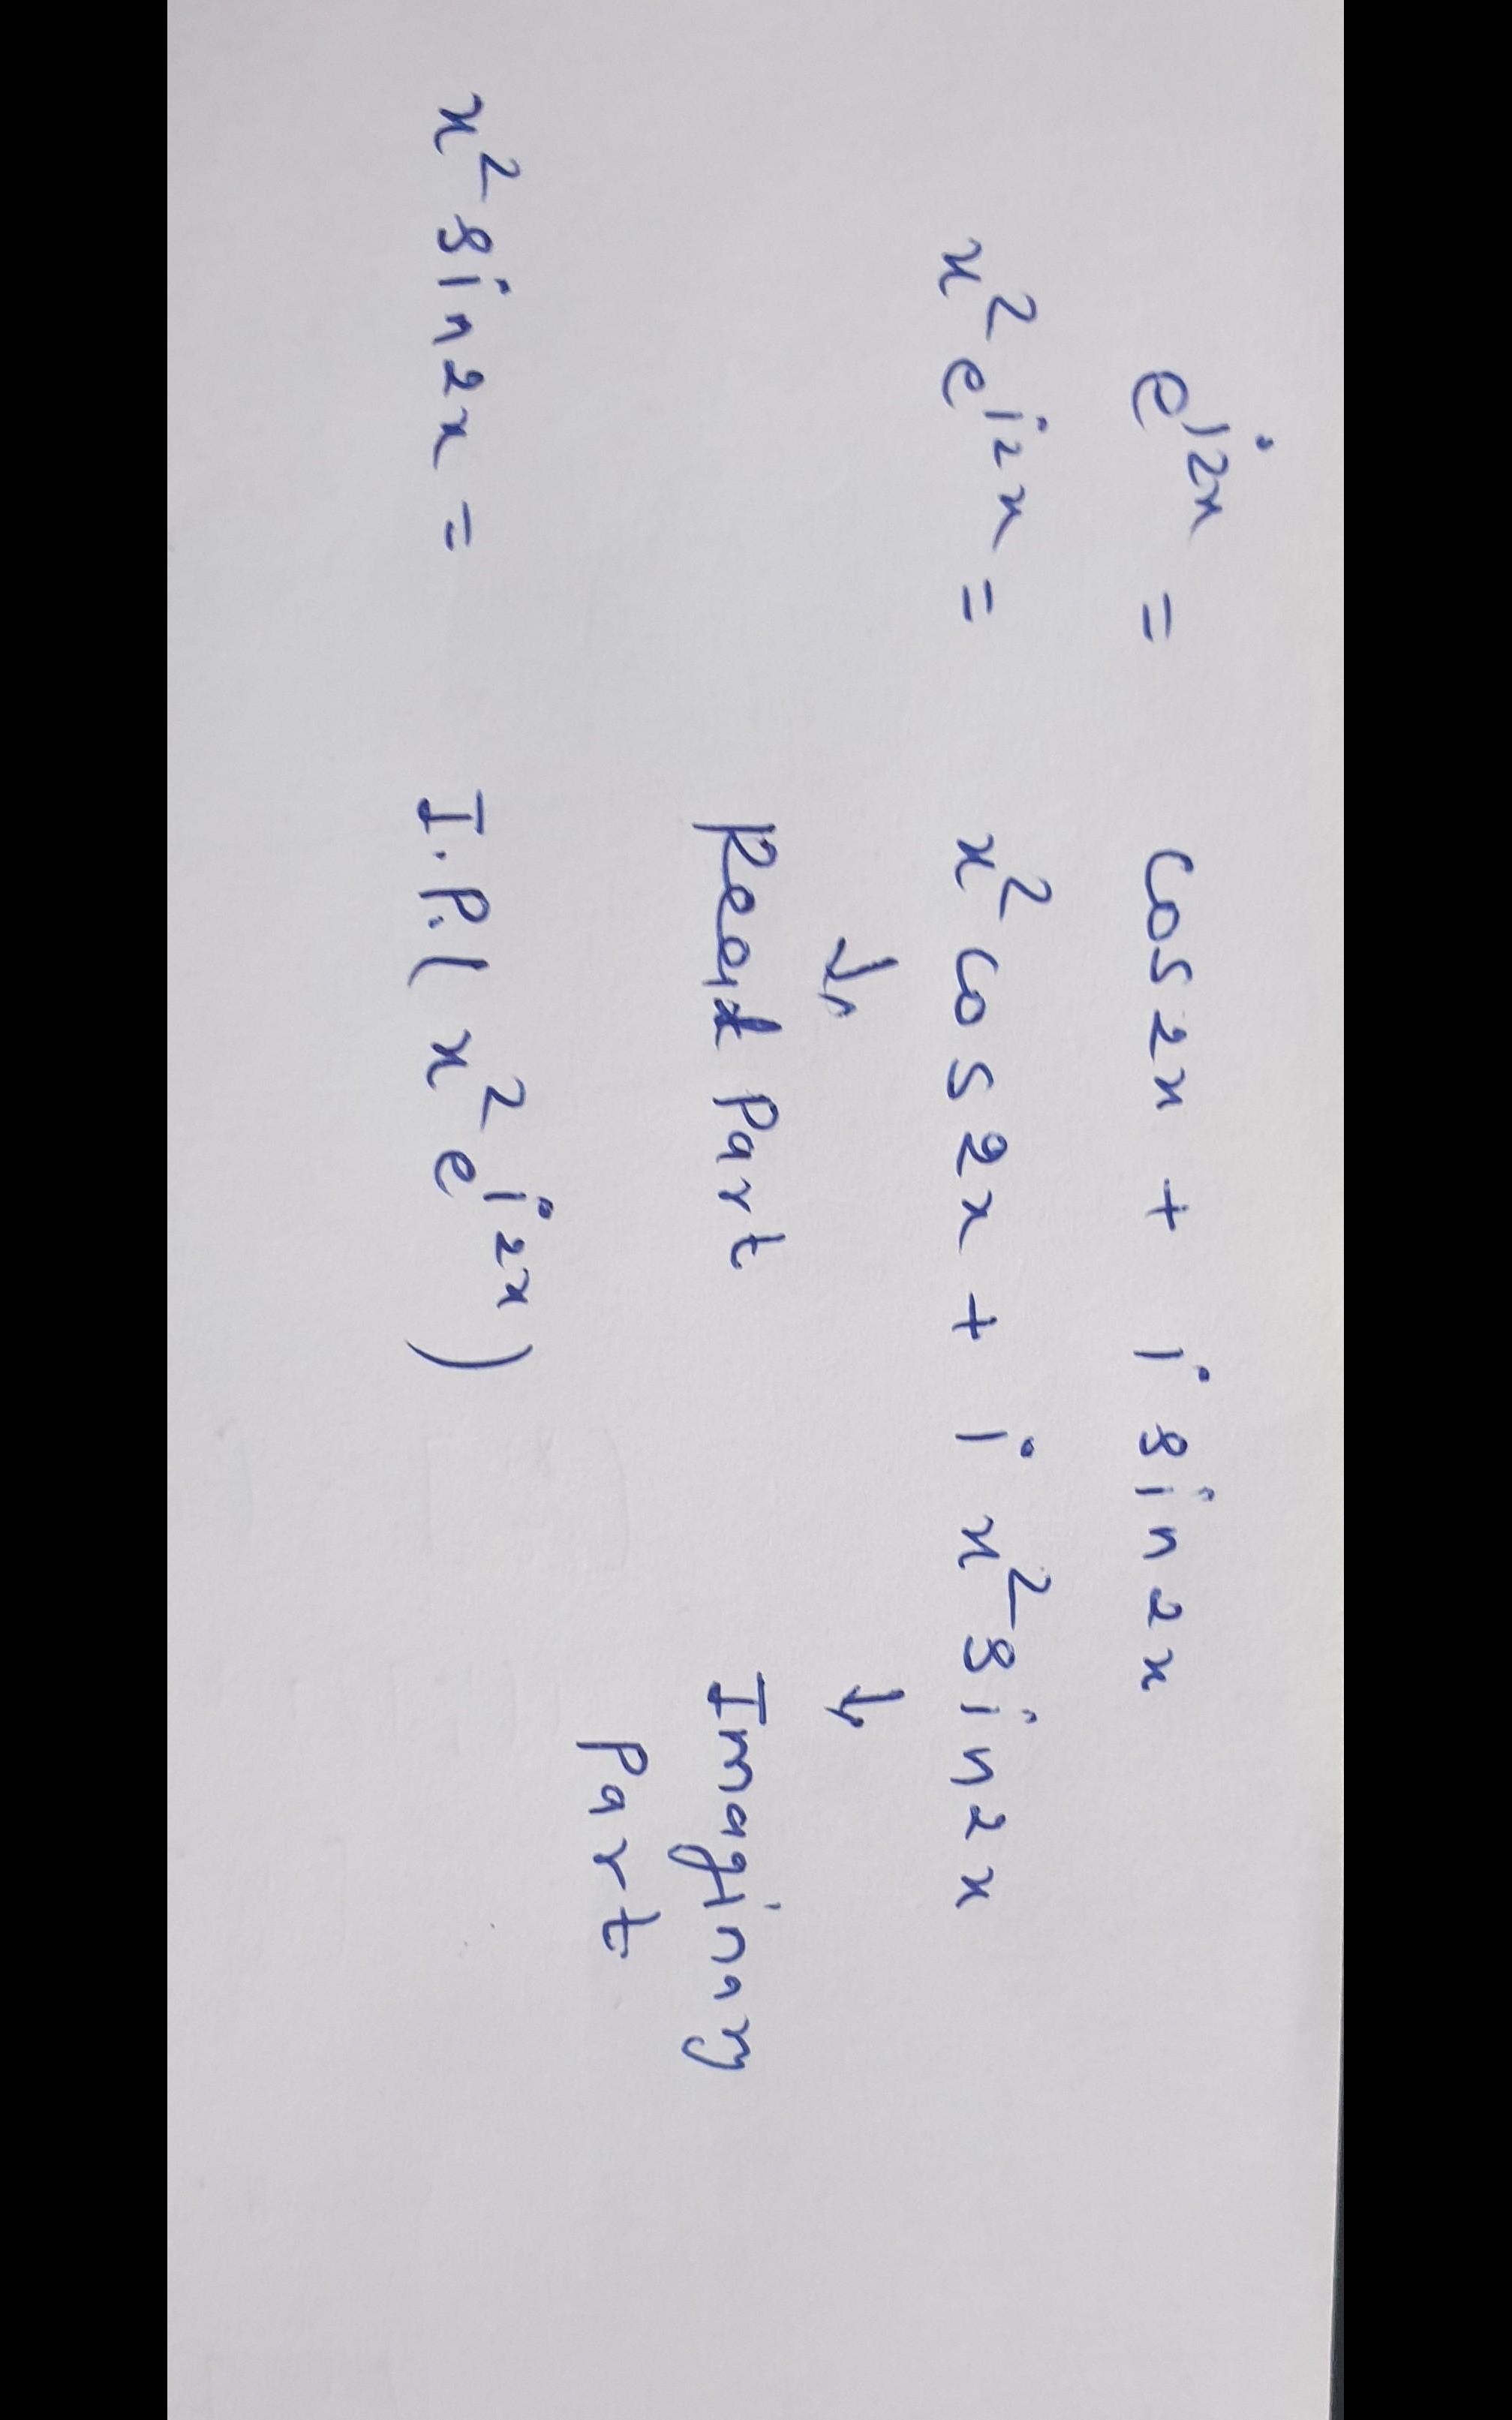 e^{i2x} = cos 2x + i sin 2x
x² e^{i2x} = x² cos 2x + i x² sin 2x
↓ ↓
Real Part Imaginary
Part
x² sin 2x = I.P. ( x² e^{i2x} )